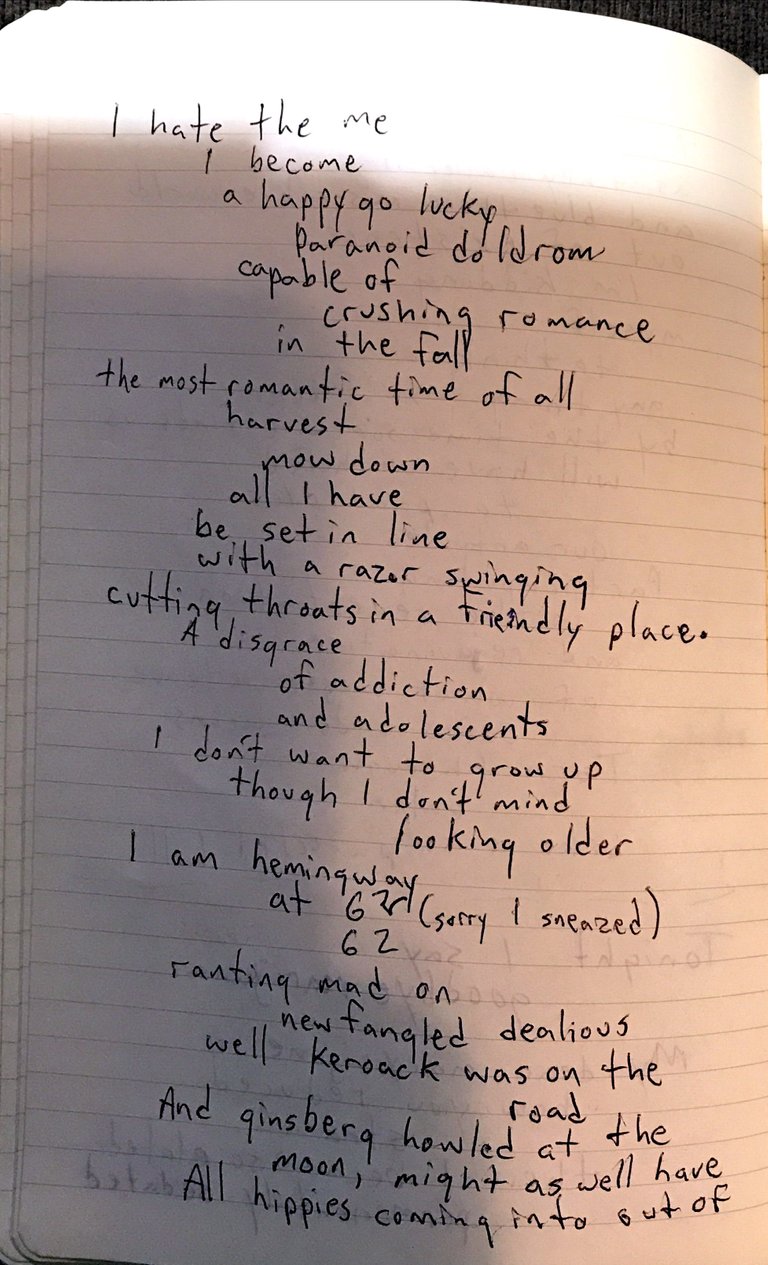 I hate the me
I become
a happy go lucky
paranoid doldrom
capable of
crushing romance
in the fall
the most romantic time of all
harvest
mow down
all I have
be set in line
with a razor swinging
cutting throats in a friendly place.
A disgrace
of addiction
and adolescents
I don't want to grow up
though I don't mind
looking older
I am hemingway
at 62 (sorry I sneazed)
62
ranting mad on
new fangled dealious
well Keroack was on the
road
And ginsberg howled at the
moon, might as well have
All hippies coming into out of